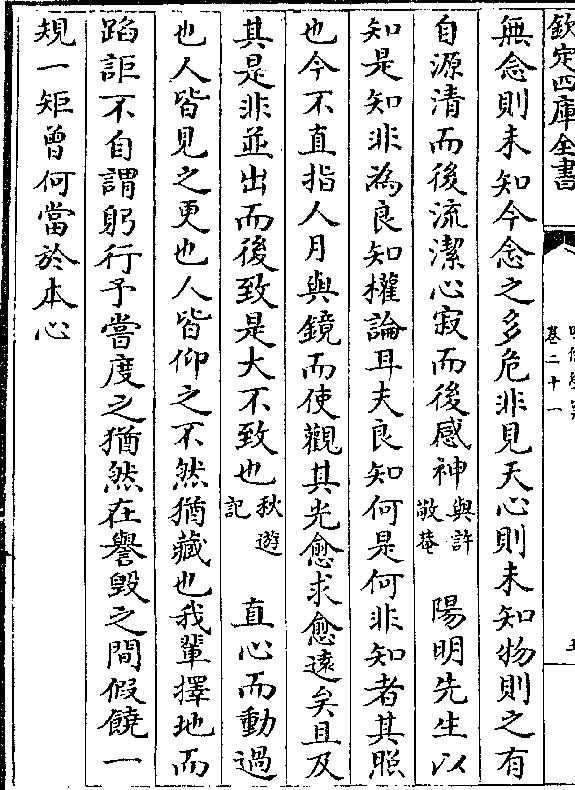 欽定四庫全書
卷二十一
無念則未知今念之多危非見天心則未知物則之有
自源清而後流潔心寂而後感神與許敬菴 陽明先生以
知是知非為良知權論耳夫良知何是何非知者其照
也今不直指人月與鏡而使觀其光愈求愈遠矣且及
其是非並出而後致是大不致也秋遊記 直心而動過
也人皆見之更也人皆仰之不然猶藏也我輩擇地而
蹈詎不自謂躬行予嘗度之猶然在譽毀之間假饒一
規一矩曾何當於本心